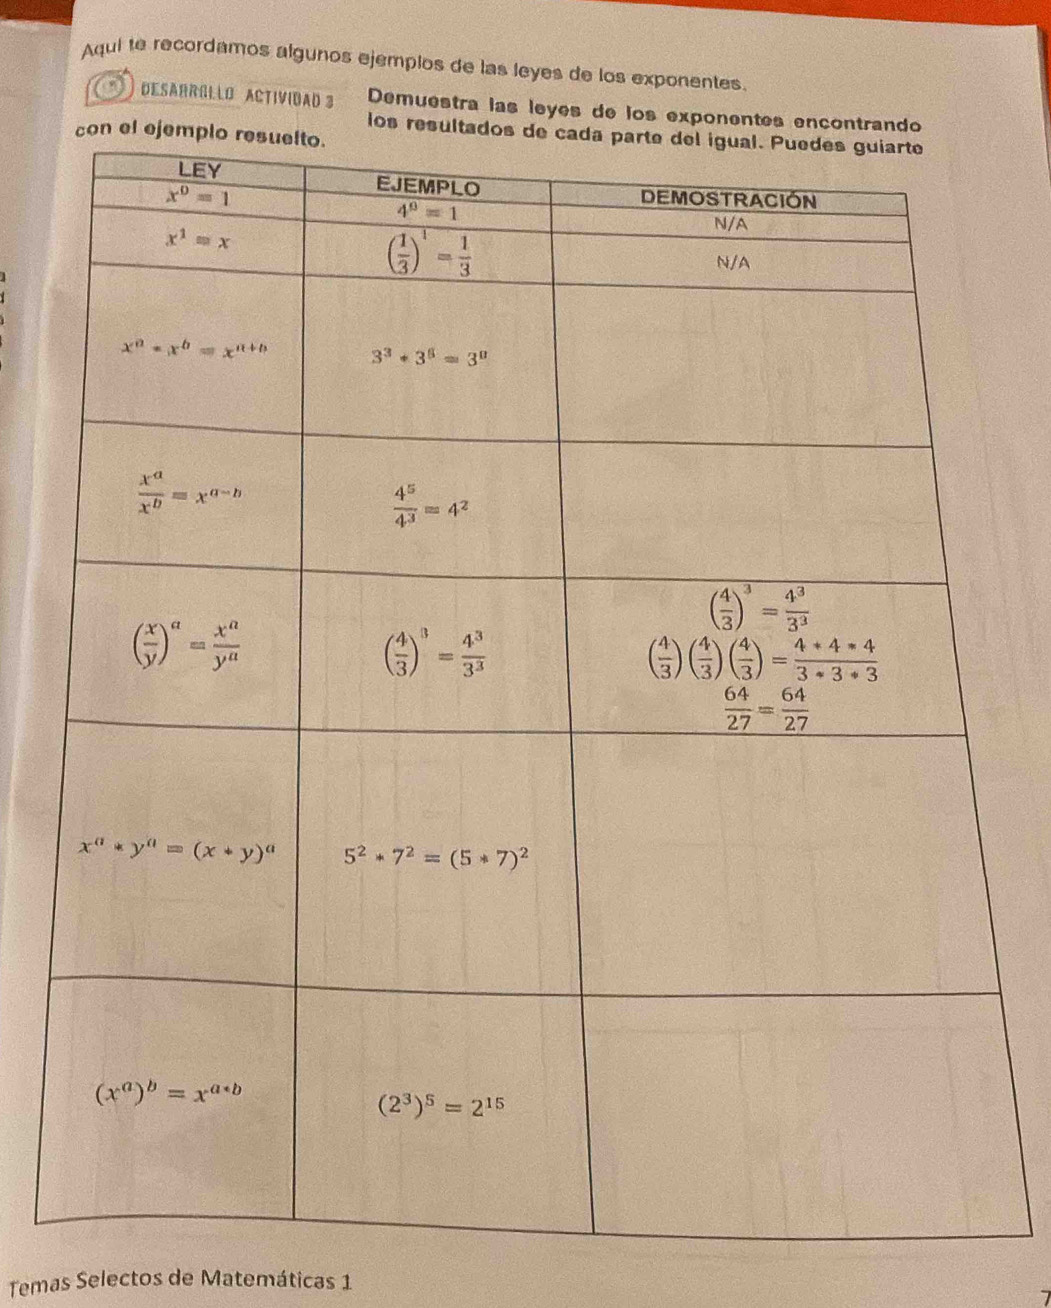 Aquí te recordamos algunos ejemplos de las leyes de los exponentes.
DESARROLLO ACTIVIDAD 3 Demuestra las leyes de los exponentes encontrando
los resultados de cada parte del igual. Puedes guiarte
con el ejemplo resuelto.
LEY EJEMPLO DEMOSTRACIÓN
x⁰ = 1 4⁰ = 1 N/A
x¹ = x (1/3)¹ = 1/3 N/A
xᵃ * xᵇ = xᵃ⁺ᵇ 3³ * 3⁵ = 3⁸
xᵃ/xᵇ = xᵃ⁻ᵇ 4⁵/4³ = 4²
(x/y)ᵃ = xᵃ/yᵃ (4/3)³ = 4³/3³ (4/3)³ = 4³/3³
(4/3)(4/3)(4/3) = 4 * 4 * 4/3 * 3 * 3
64/27 = 64/27
xᵃ * yᵃ = (x * y)ᵃ 5² * 7² = (5 * 7)²
(xᵃ)ᵇ = xᵃ*ᵇ (2³)⁵ = 2¹⁵
Temas Selectos de Matemáticas 1
7